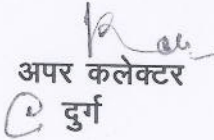 अपर कलेक्टर
दुर्ग